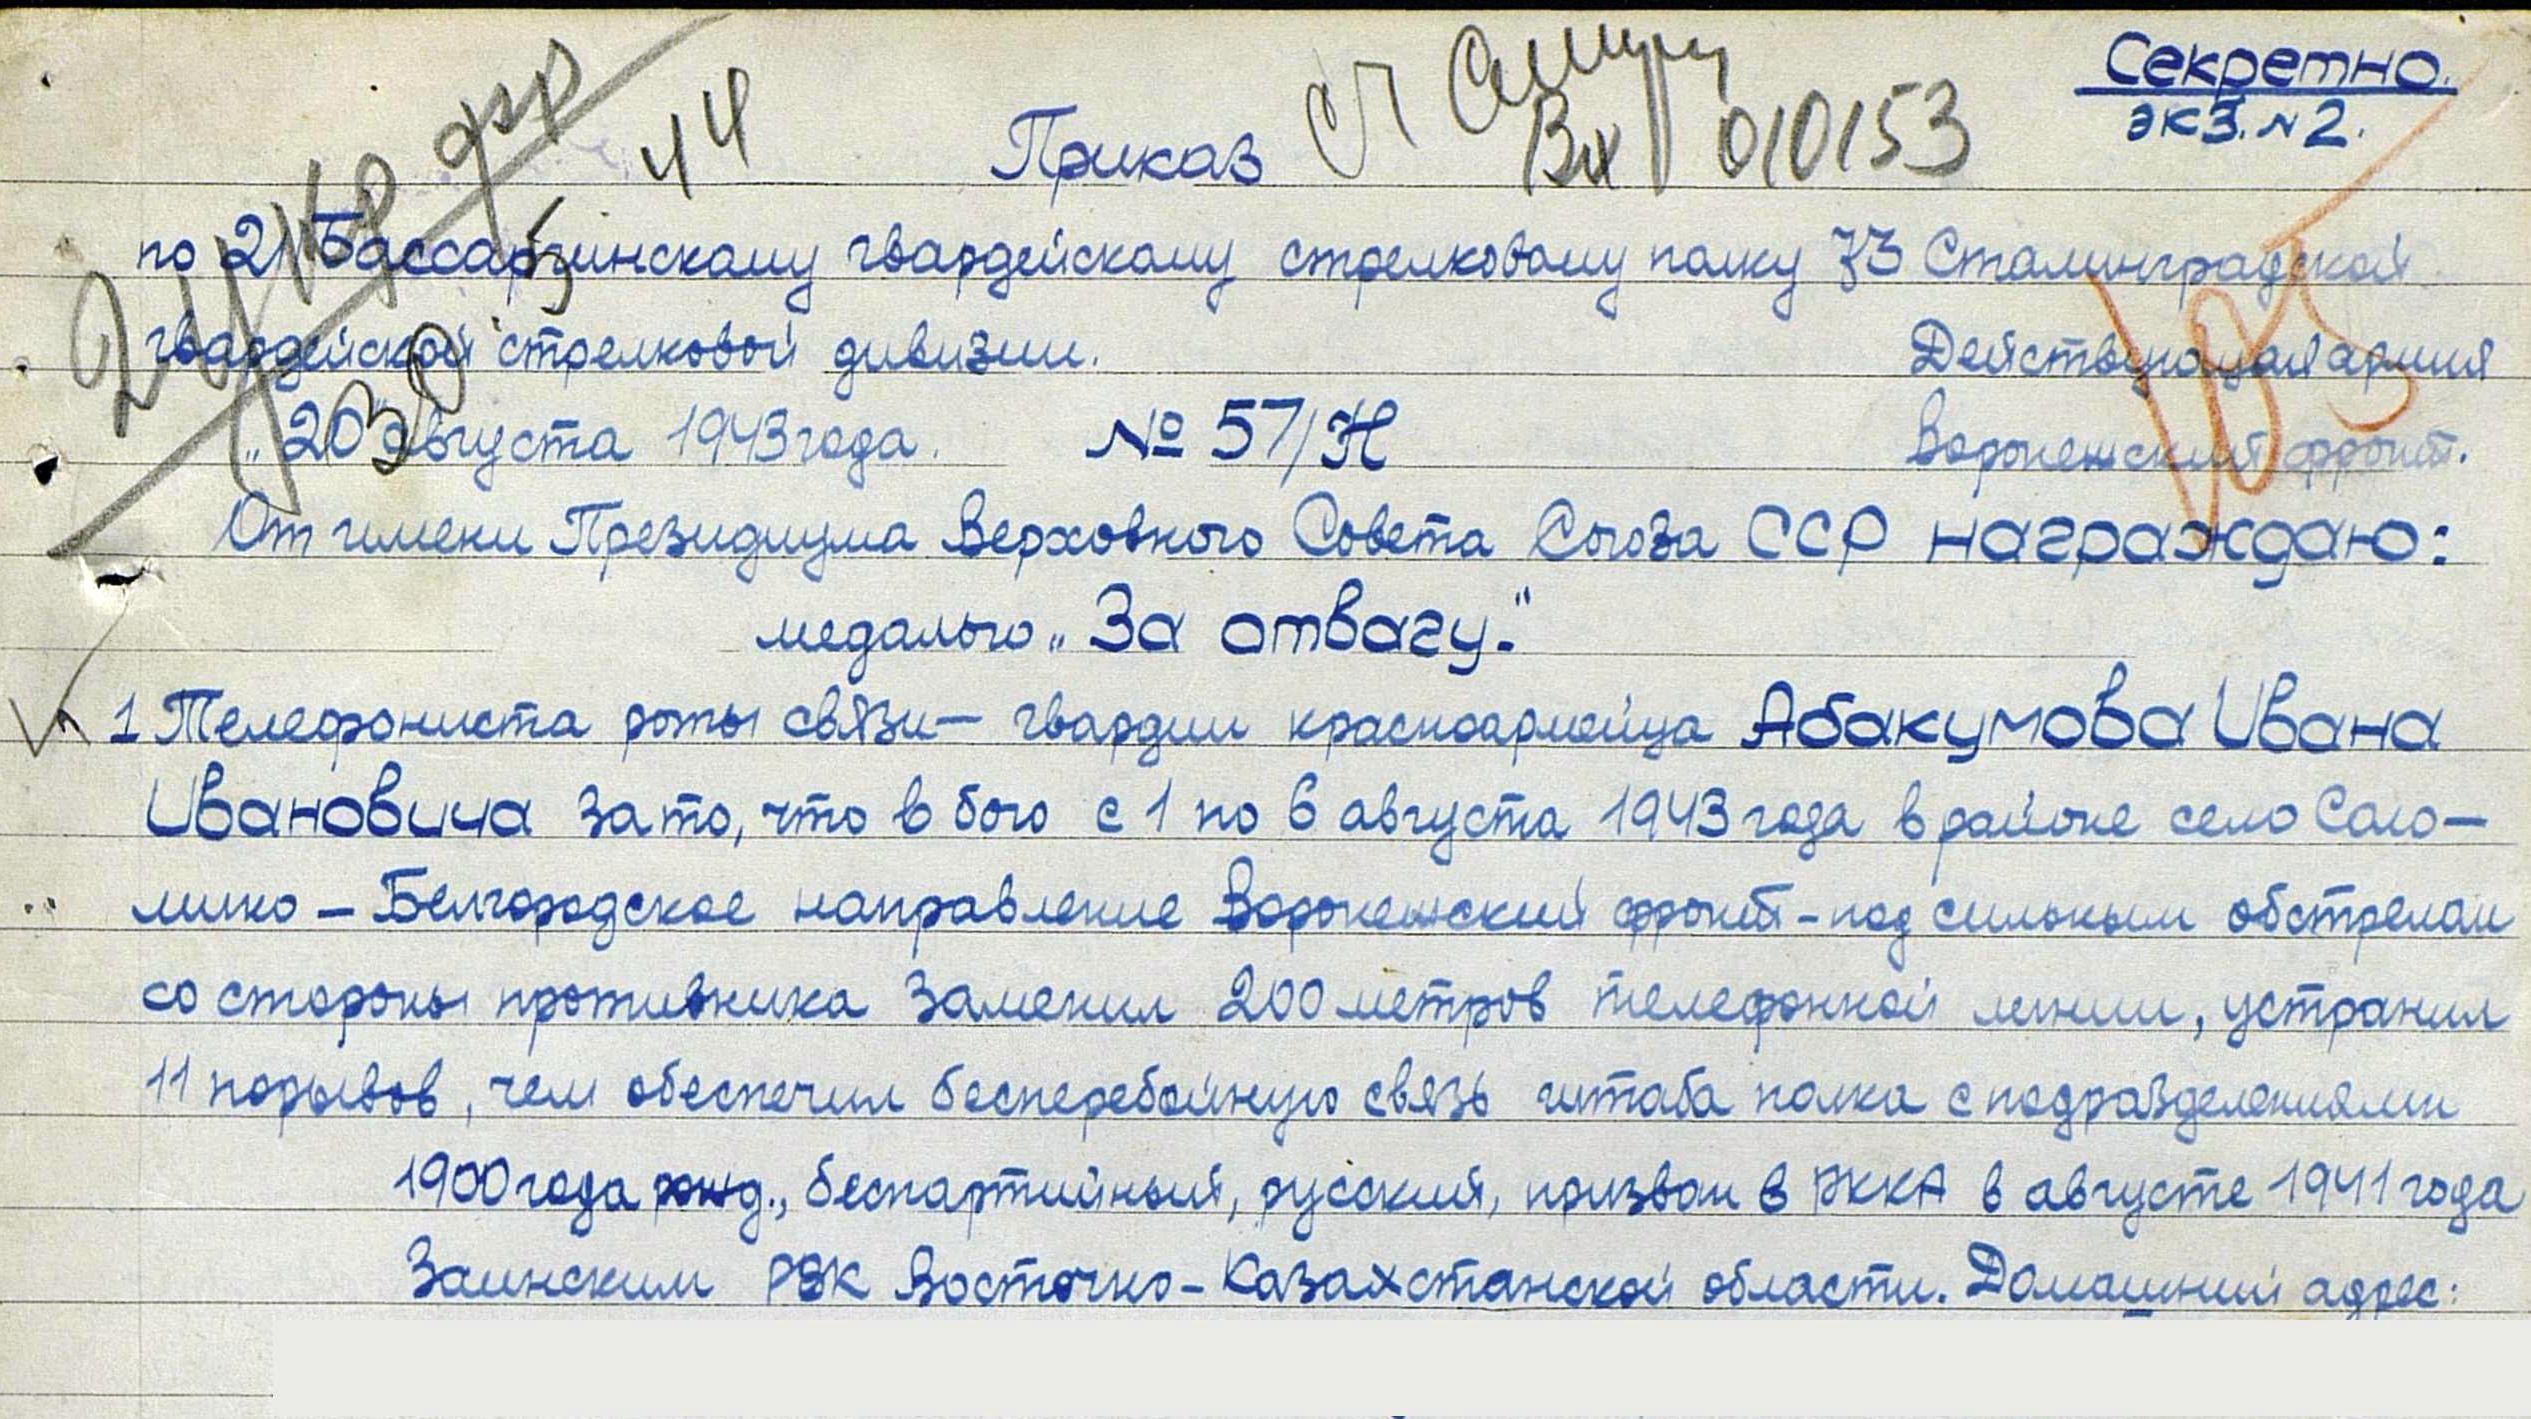 Секретно.
экз. № 2.
Приказ
Вх 010153
44
по 211 Бассаргинскому гвардейскому стрелковому полку 73 Сталинградской
гвардейской стрелковой дивизии.
Действующая армия
„20" августа 1943 года. № 57/Н
Воронежский фронт.
От имени Президиума Верховного Совета Союза ССР награждаю:
медалью „За отвагу."
1 Телефониста роты связи – гвардии красноармейца Абакумова Ивана
Ивановича за то, что в бою с 1 по 6 августа 1943 года в районе село
– Белгородское направление Воронежский фронт – под сильным обстрелом
со стороны противника заменил 200 метров телефонной линии, устранил
11 порывов, чем обеспечил бесперебойную связь штаба полка с подразделениями
1900 года рожд., беспартийный, русский, призван в РККА в августе 1941 года
РВК Восточно-Казахстанской области. Домашний адрес: